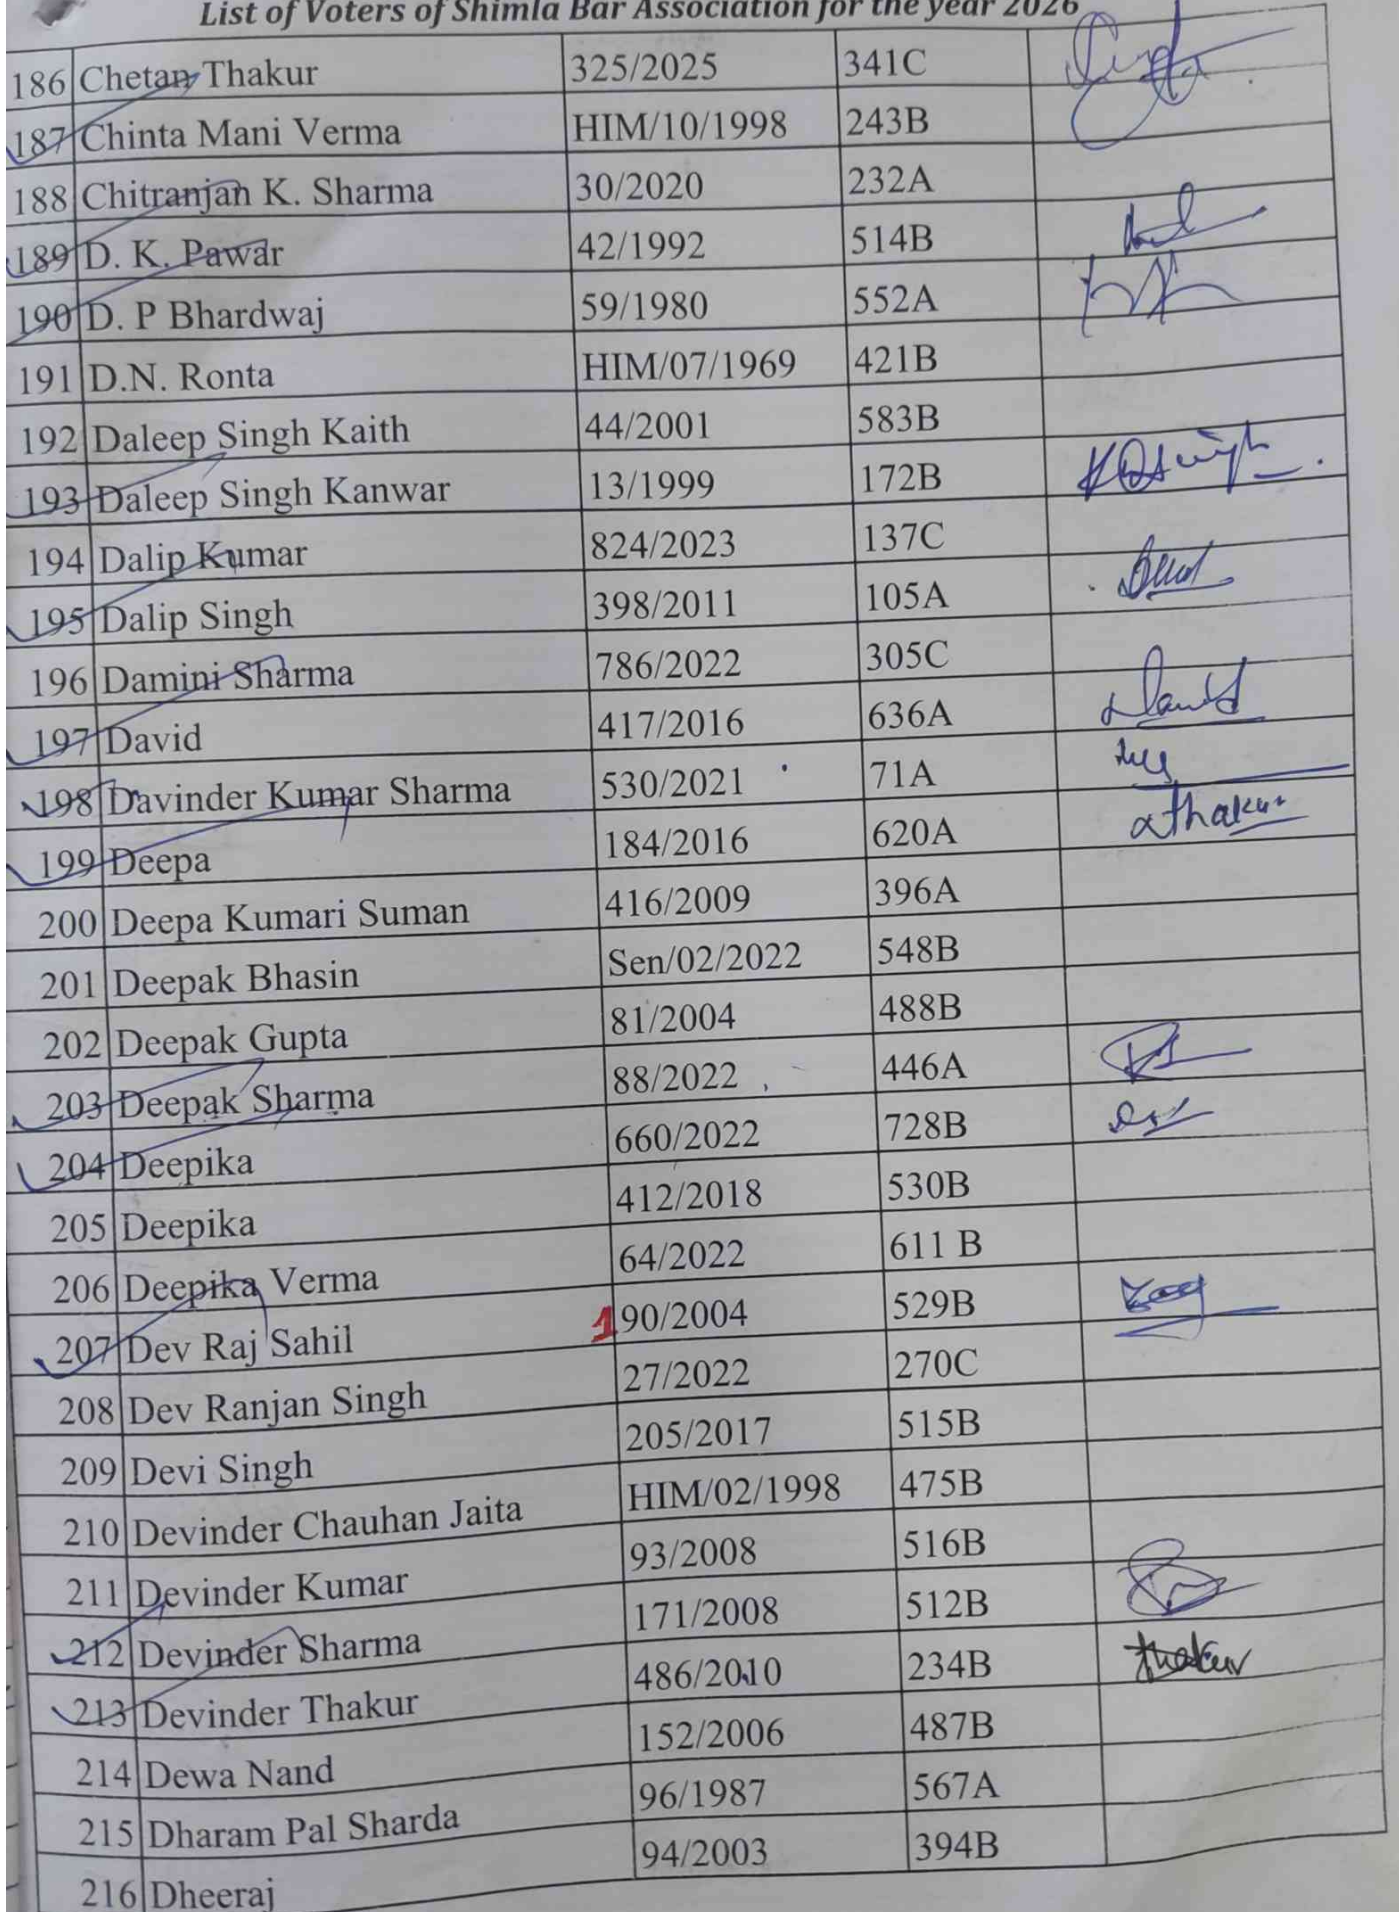 List of Voters of Shimla Bar Association for the year 2026
186 Chetan Thakur 325/2025 341C
187 Chinta Mani Verma HIM/10/1998 243B
188 Chitranjan K. Sharma 30/2020 232A
189 D. K. Pawar 42/1992 514B
190 D. P Bhardwaj 59/1980 552A
191 D.N. Ronta HIM/07/1969 421B
192 Daleep Singh Kaith 44/2001 583B
193 Daleep Singh Kanwar 13/1999 172B
194 Dalip Kumar 824/2023 137C
195 Dalip Singh 398/2011 105A
196 Damini Sharma 786/2022 305C
197 David 417/2016 636A
198 Davinder Kumar Sharma 530/2021 71A
199 Deepa 184/2016 620A thakur
200 Deepa Kumari Suman 416/2009 396A
201 Deepak Bhasin Sen/02/2022 548B
202 Deepak Gupta 81/2004 488B
203 Deepak Sharma 88/2022 446A
204 Deepika 660/2022 728B
205 Deepika 412/2018 530B
206 Deepika Verma 64/2022 611 B
207 Dev Raj Sahil 190/2004 529B
208 Dev Ranjan Singh 27/2022 270C
209 Devi Singh 205/2017 515B
210 Devinder Chauhan Jaita HIM/02/1998 475B
211 Devinder Kumar 93/2008 516B
212 Devinder Sharma 171/2008 512B
213 Devinder Thakur 486/2010 234B thakur
214 Dewa Nand 152/2006 487B
215 Dharam Pal Sharda 96/1987 567A
216 Dheeraj 94/2003 394B